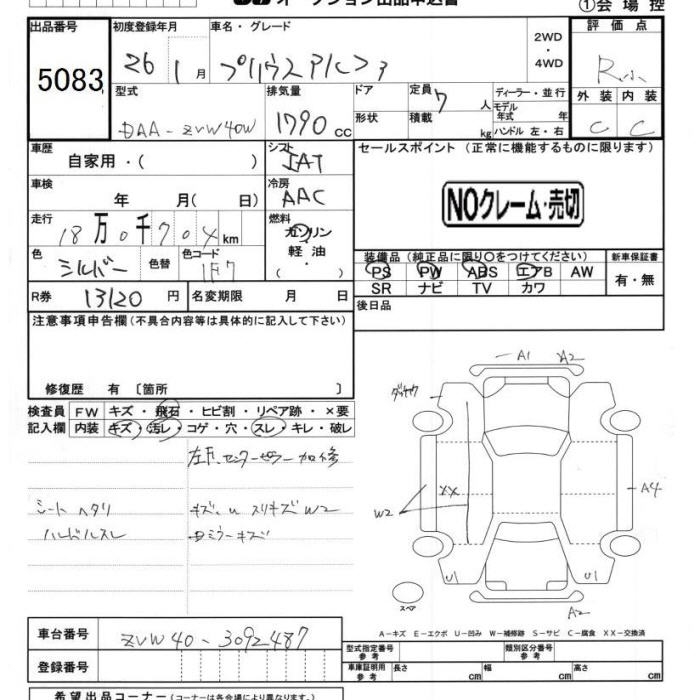 オークション出品申込書
①会場控
出品番号
5083
初度登録年月
26年 1月
車名・グレード
プリウスアルファ
2WD
・
4WD
評価点
R
外装 内装
C C
型式
DAA-ZVW40W
排気量
1790 CC
ドア
形状
定員 7 人
積載 kg
ディーラー・並行
モデル年式 年
ハンドル 左・右
車歴
自家用・( )
シフト
IAT
セールスポイント (正常に機能するものに限ります)
NOクレーム・売切
車検
年 月( 日)
冷房
AAC
走行
18万0千704km
燃料
ガソリン
軽油
色
シルバー
色替
色コード
1F7
装備品(純正品に限り○をつけてください)
PS PW ABS エアB AW
SR ナビ TV カワ
新車保証書
有・無
R券 13120 円
名変期限 月 日
後日品
注意事項申告欄(不具合内容等は具体的に記入して下さい)
修復歴 有〔箇所 〕
検査員記入欄
FW キズ・飛石・ヒビ割・リペア跡・×要
内装 キズ・汚レ・コゲ・穴・スレ・キレ・破レ
左F、センターピラー加修
シートヘタリ
キズ、U スリキズ W2
ハンドルスレ
ミラーキズ
A1 A2
XX
W2
A4
U1 U1
スペア
A2
A-キズ E-エクボ U-凹み W-補修跡 S-サビ C-腐食 XX-交換済
車台番号
ZVW40-3092487
登録番号
型式指定番号 参考
類別区分番号 参考
車庫証明用 参考
長さ cm 幅 cm 高さ cm
希望出品コーナー(コーナーは各会場により異なります)